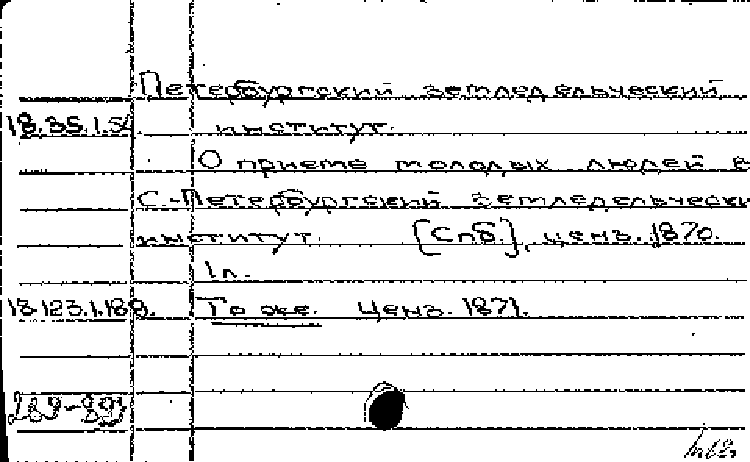 Петербургский земледельческий
18.35.1.54. институт.
О приеме молодых людей в
С.-Петербургский земледельчески
институт. [Спб.], ценз. 1870.
1 л.
18.123.1.189. То же. Ценз. 1871.